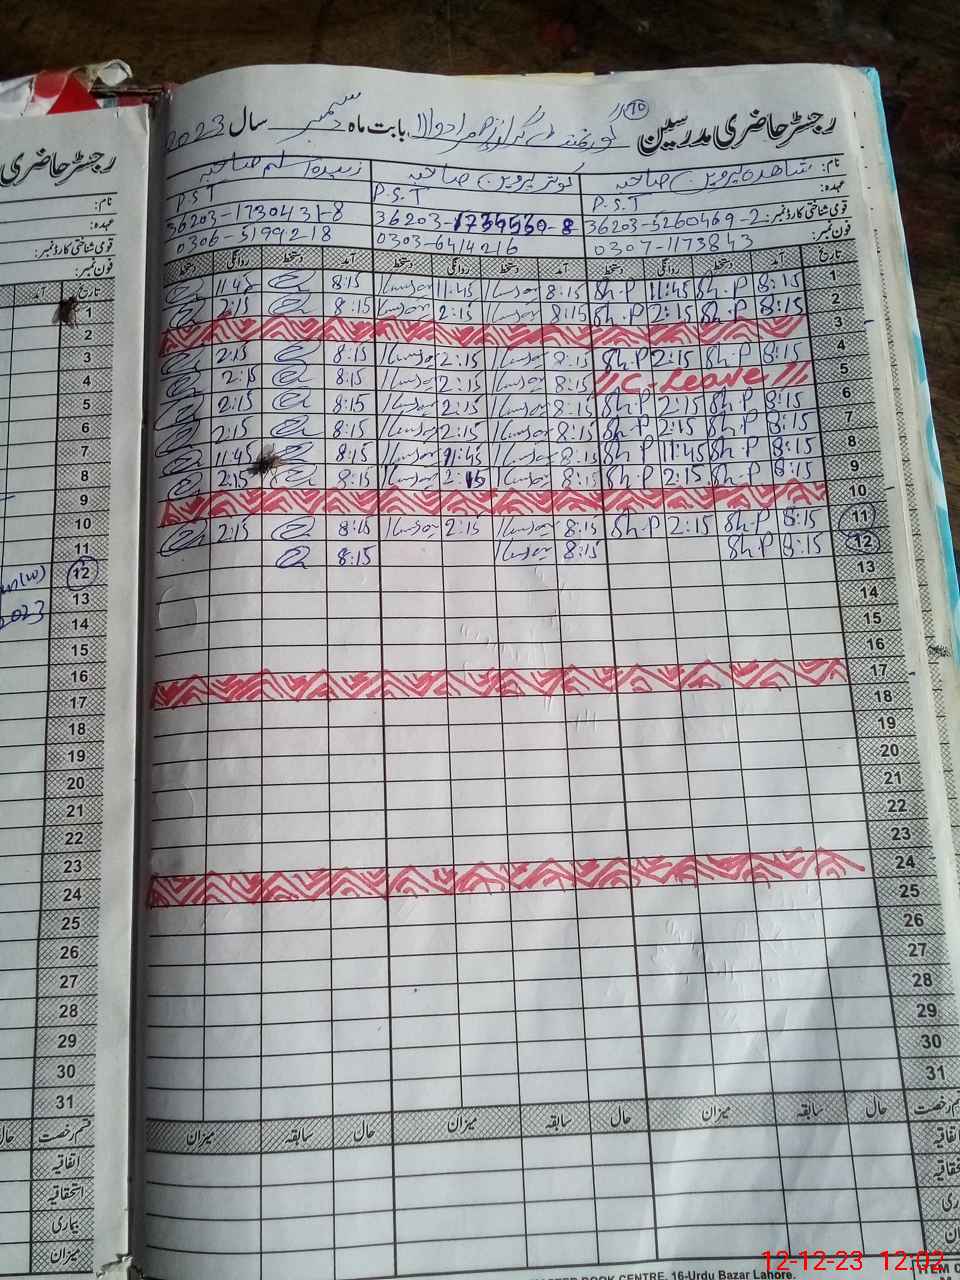 رجسٹر حاضری مدرسین گورنمنٹ بابت ماہ دسمبر سال 2023
نام: شاھدہ پروین صاحبہ کوثر پروین صاحبہ زبیدہ اسلم صاحبہ
عہدہ: P.S.T P.S.T P.S.T
قومی شناختی کارڈ نمبر: 36203-5260469-2 36203-1730431-8
فون نمبر: 0307-1173843 0303-6414216 0306-5199218
تاریخ آمد دستخط روانگی دستخط آمد دستخط روانگی دستخط آمد دستخط روانگی دستخط
1 8:15 Sh.P 11:45 Sh.P 8:15 11:45 8:15 11:45
2 8:15 Sh.P 2:15 Sh.P 8:15 2:15 8:15 2:15
3
4 8:15 Sh.P 2:15 Sh.P 8:15 2:15 8:15 2:15
5 // C-Leave // 8:15 2:15 8:15 2:15
6 8:15 Sh.P 2:15 Sh.P 8:15 2:15 8:15 2:15
7 8:15 Sh.P 2:15 Sh.P 8:15 2:15 8:15 2:15
8 8:15 Sh.P 11:45 Sh.P 8:15 11:45 8:15 11:45
9 8:15 Sh.P 2:15 Sh.P 8:15 2:15 8:15 2:15
10
11 8:15 Sh.P 2:15 Sh.P 8:15 2:15 8:15 2:15
12 8:15 Sh.P 8:15 8:15
13
14
15
16
17
18
19
20
21
22
23
24
25
26
27
28
29
30
31
قسم رخصت حال سابقہ میزان حال سابقہ میزان حال سابقہ میزان
رجسٹر حاضری
نام:
عہدہ:
قومی شناختی کارڈ نمبر:
فون نمبر:
تاریخ آمد
1
2
3
4
5
6
7
8
9
10
11
12
13
14
15
16
17
18
19
20
21
22
23
24
25
26
27
28
29
30
31
قسم رخصت حال
اتفاقیہ
استحقاقیہ
بیماری
میزان
2023
BOOK CENTRE, 16-Urdu Bazar Lahore.
12-12-23 12:02